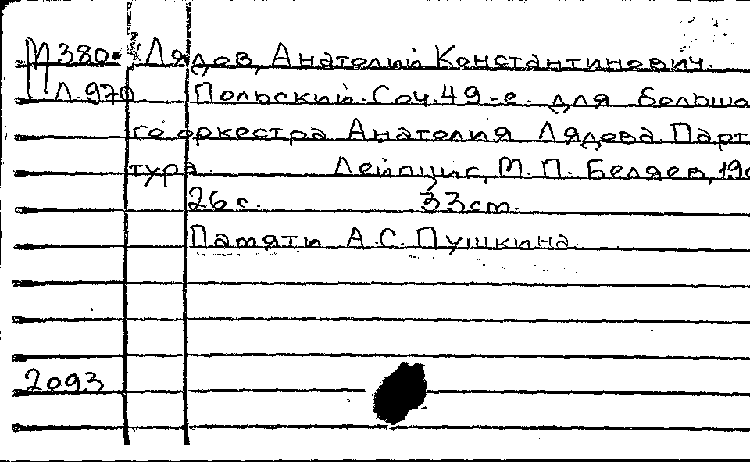 М380- Лядов, Анатолий Константинович.
Л.970 Польский. Соч. 49-е. для большо
го оркестра Анатолия Лядова. Парт
тура. Лейпциг, М. П. Беляев, 190
26 с. 33 cm.
Памяти А.С. Пушкина.
2093